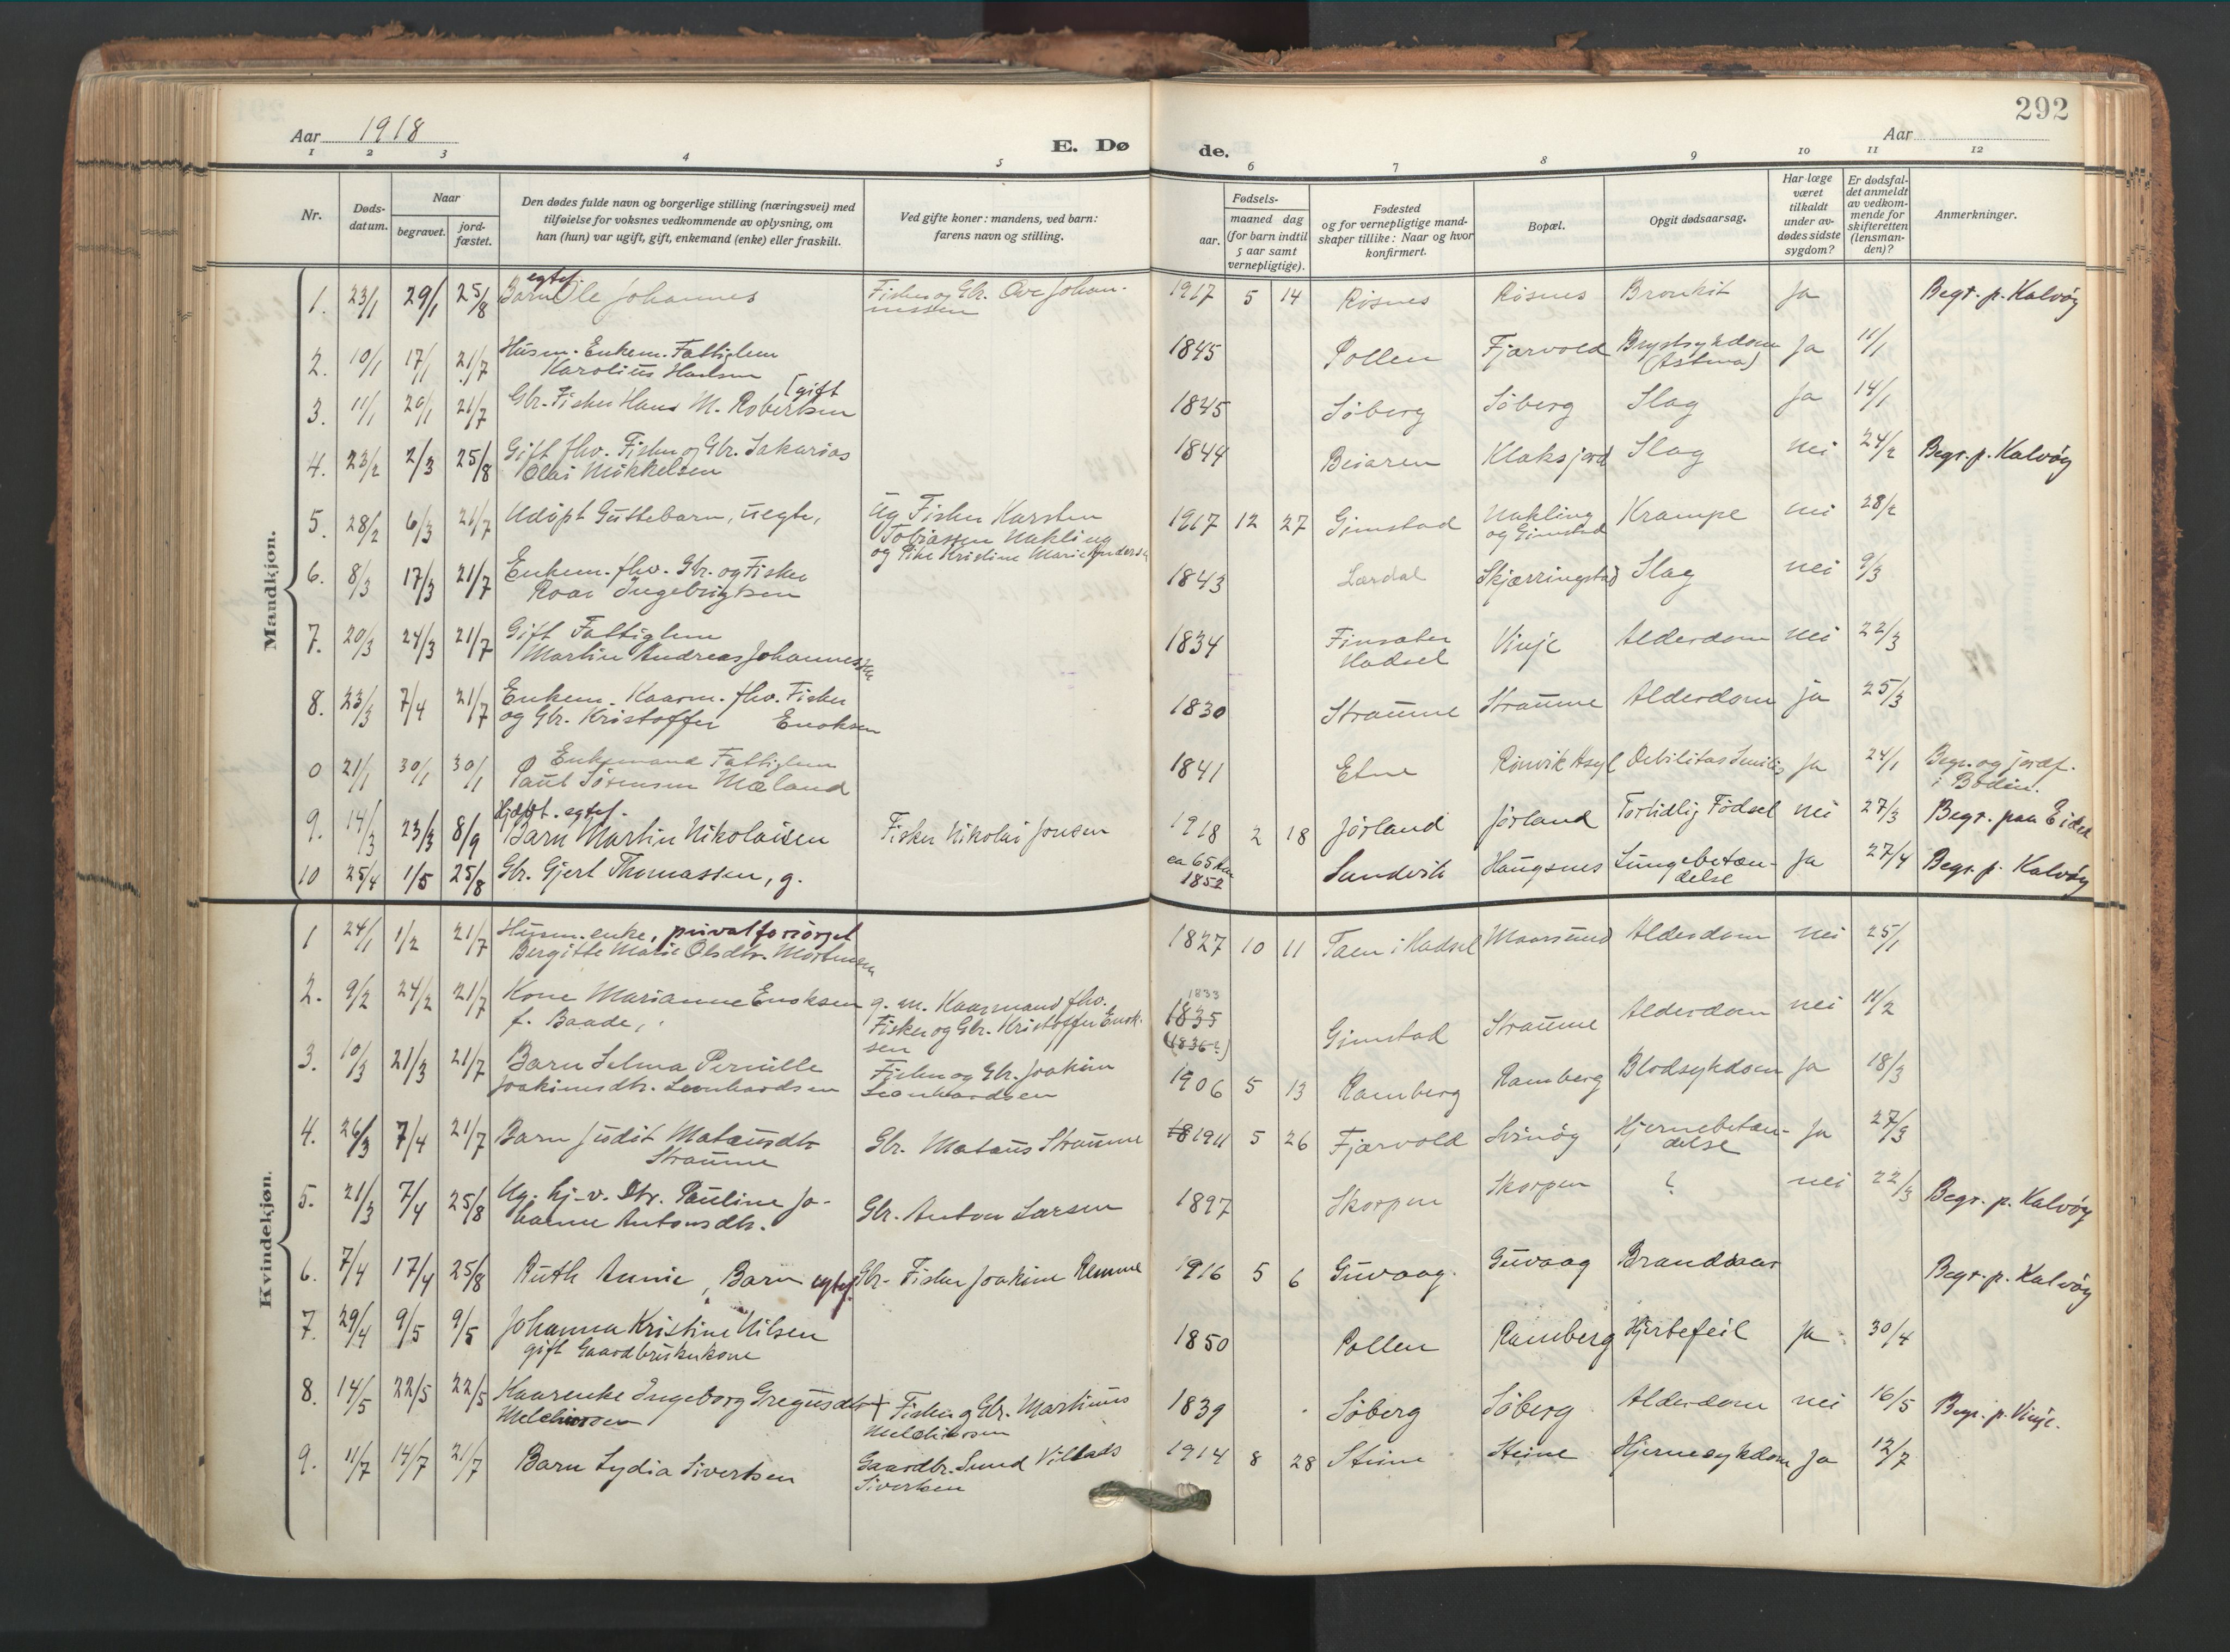 292
Aar 1918
E. Dø
de.
Aar
1 2 3 4 5 6 7 8 9 10 11 12
Nr.
Døds-
datum.
Naar
begravet.
jord-
fæstet.
Den dødes fulde navn og borgerlige stilling (næringsvei) med
tilføielse for voksnes vedkommende av oplysning, om
han (hun) var ugift, gift, enkemand (enke) eller fraskilt.
Ved gifte koner: mandens, ved barn:
farens navn og stilling.
Fødsels-
aar.
maaned dag
(for barn indtil
5 aar samt
vernepligtige).
Fødested
og for vernepligtige mand-
skaper tillike: Naar og hvor
konfirmert.
Bopæl.
Opgit dødsaarsag.
Har læge
været
tilkaldt
under av-
dødes sidste
sygdom?
Er dødsfal-
det anmeldt
av vedkom-
mende for
skifteretten
(lensman-
den)?
Anmerkninger.
Mandkjøn.
egtef.
1. 23/1 29/1 25/8 Barn Ole Johannes Fisker og Gbr. Ove Johan- 1917 5 14 Røsnes Røsnes Bronkit Ja Begr. p. Kalvøy
nessen
Husm. Enkem. Fattiglem
2. 10/1 17/1 21/7 Karolius Hansen 1845 Pollen Fjærvold Brystsykdom Ja 11/1
(Astma)
[gift
3. 11/1 20/1 21/7 Gbr. Fisker Hans M. Robertsen 1845 Søberg Søberg Slag Ja 14/1
4. 23/2 2/3 25/8 Gift fhv. Fisker og Gbr. Sakarias 1844 Beiaren Klaksjord Slag nei 24/2 Begr. p. Kalvøy
Olai Mikkelsen
5. 28/2 6/3 21/7 Udøpt Guttebarn, uegte, Ug Fisker Karsten 1917 12 27 Gimstad Nakling Krampe nei 28/2
Tobiassen Nakling og Gimstad
og Pike Kristine Marie Andersen
6. 8/3 17/3 21/7 Enkem. fhv. Gbr. og Fisker 1843 Lærdal Skjærringstad Slag nei 9/3
Roar Ingebrigtsen
7. 20/3 24/3 21/7 Gift Fattiglem 1834 Finsæter Vinje Alderdom nei 22/3
Martin Andreas Johannessen Hadsel
8. 23/3 7/4 21/7 Enkem. Kaarm. fhv. Fisker 1830 Straume Straume Alderdom ja 25/3
og Gbr. Kristoffer Enoksen
0 21/1 30/1 30/1 Enkemand Fattiglem 1841 Etne Rønvik Asyl Debilitas Senilis Ja 24/1 Begr. og jordf.
Paul Sørensen Mæland i Bodin.
Hjdøpt. egtef.
9. 14/3 23/3 8/9 Barn Martin Nikolaisen Fisker Nikolai Jonsen 1918 2 18 Jørland Jørland Fortidlig Fødsel nei 27/3 Begr. paa Eidet
10 25/4 1/5 25/8 Gbr. Gjert Thomassen, g. ca 65 aar Sundvik Haugsnes Lungebetæn- Ja 27/4 Begr. p. Kalvøy
1852 delse
Kvindekjøn.
1 24/1 1/2 21/7 Husm.enke, privatforsørget 1827 10 11 Taen i Hadsel Maarsund Alderdom nei 25/1
Bergitte Marie Olsdtr. Mortensen
2. 9/2 24/2 21/7 Kone Marianne Enoksen g. m. Kaarmand fhv. 1833 Gimstad Straume Alderdom nei 11/2
f. Baade, Fisker og Gbr. Kristoffer Enok- 1835
sen (1836?)
3. 10/3 21/3 21/7 Barn Selma Pernille Fisker og Gbr. Joakim 1906 5 13 Ramberg Ramberg Blodsykdom Ja 18/3
Joakimsdtr. Leonhardsen Leonhardsen
4. 26/3 7/4 21/7 Barn Judit Matausdtr. Gbr. Mataus Straume 18 1911 5 26 Fjærvold Svinøy Hjernebetæn- Ja 27/3
Straume delse
5. 21/3 7/4 25/8 Ug. hj-v. Dtr. Pauline Jo- Gbr. Anton Larsen 1897 Skorpen Skorpen ? nei 22/3 Begr. p. Kalvøy
hanne Antonsdtr.
6. 7/4 17/4 25/8 Ruth Annie, Barn egtef. Gbr. Fisker Joakim Remme 1916 5 6 Guvaag. Guvaag Brandsaar Begr. p. Kalvøy
7. 29/4 9/5 9/5 Johanna Kristine Nilsen 1850 Pollen Ramberg Hjertefeil Ja 30/4
gift Gaardbrukerkone
8. 14/5 22/5 22/5 Kaarenke Ingeborg Gregusdtr. + Fisker og Gbr. Martinus 1839 Søberg Søberg Alderdom nei 16/5 Begr. p. Vinje.
Melchiorsen Melchiorsen
9. 11/7 14/7 21/7 Barn Lydia Sivertsen Gaardbr. Sund Villads 1914 8 28 Steine Steine Hjernesykdom Ja 12/7
Sivertsen